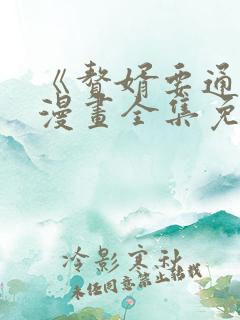 《赘婿要通
漫畫全集免
冷影寒秋
未经同意禁止转载